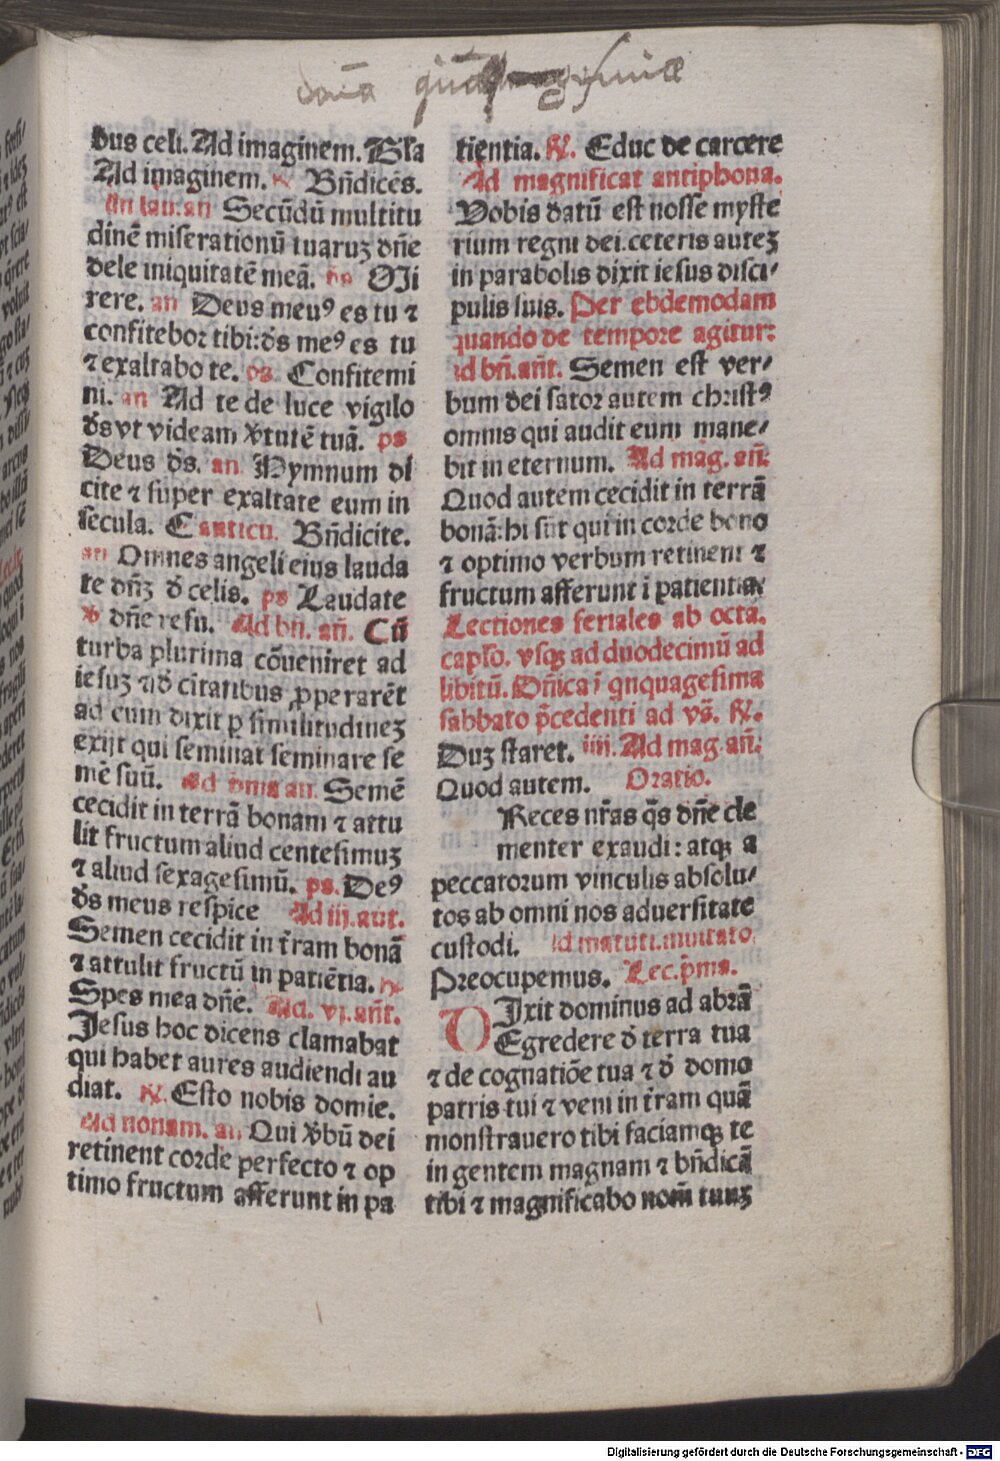 bus celi. Ad imaginem. Gl'a
Ad imaginem. Bn̄dicēs.
In lau. an Secūdū multitu
dinē miserationū tuaruꝫ dn̄e
dele iniquitatē meā. ps Mi
rere. an Deus meuꝰ es tu ⁊
confiteboꝛ tibi: ds̄ meꝰ es tu
⁊ exaltabo te. ps Confitemi
ni. an Ad te de luce vigilo
ds̄ vt videam v̄tutē tuā. ps
Deus ds̄. an Hymnum di
cite ⁊ super exaltate eum in
secula. Canticū. Bn̄dicite.
an Omnes angeli eius lauda
te dn̄ꝫ d̄ celis. ps Laudate
v̄ dn̄e refu. Ad bn̄. an̄. Cū
turba plurima cōueniret ad
iesuꝫ ⁊ d̄ ciuitatibus ꝓperarēt
ad eum dixit ꝑ similitudineꝫ
exijt qui seminat seminare se
mē suū. Ad p̄ma an. Semē
cecidit in terrā bonam ⁊ attu
lit fructum aliud centesimuꝫ
⁊ aliud sexagesimū. ps. Deꝰ
ds̄ meus respice Ad iij. ant.
Semen cecidit in t̄ram bonā
⁊ attulit fructū in patiētia. ℟
Spes mea dn̄e. Ad. vj. an̄t.
Jesus hoc dicens clamabat
qui habet aures audiendi au
diat. ℟. Esto nobis domie.
Ad nonam. an Qui v̄bū dei
retinent coꝛde perfecto ⁊ op
timo fructum afferunt in pa
tientia. ℟. Educ de carcere
Ad magnificat antiphona.
Vobis datū est nosse myste
rium regni dei. ceteris auteꝫ
in parabolis dixit iesus disci⸗
pulis suis. Per ebdemodam
quando de tempore agitur:
ad bn̄. an̄t. Semen est ver⸗
bum dei satoꝛ autem christꝰ
omnis qui audit eum mane⸗
bit in eternum. Ad mag. an̄.
Quod autem cecidit in terrā
bonā: hi sūt qui in coꝛde bono
⁊ optimo verbum retinent ⁊
fructum afferunt ī patientia.
Lectiones feriales ab octa.
caplo. vsqꝫ ad duodecimū ad
libitū. Dn̄ica ī qn̄quagesima
sabbato p̄cedenti ad vs̄. ℟.
Duꝫ staret. iiij. Ad mag. an̄.
Quod autem. Oratio.
Reces nr̄as qs̄ dn̄e cle
menter exaudi: atqꝫ a
peccatoꝛum vinculis absolu⸗
tos ab omni nos aduersitate
custodi. Ad matuti. inuitato.
Preocupemus. Lec. p̄ma.
DIxit dominus ad abrā
Egredere d̄ terra tua
⁊ de cognatiōe tua ⁊ d̄ domo
patris tui ⁊ veni in t̄ram quā
monstrauero tibi faciamqꝫ te
in gentem magnam ⁊ bn̄dicā
tibi ⁊ magnificabo nom̄ tuuꝫ
Digitalisierung gefördert durch die Deutsche Forschungsgemeinschaft - DFG